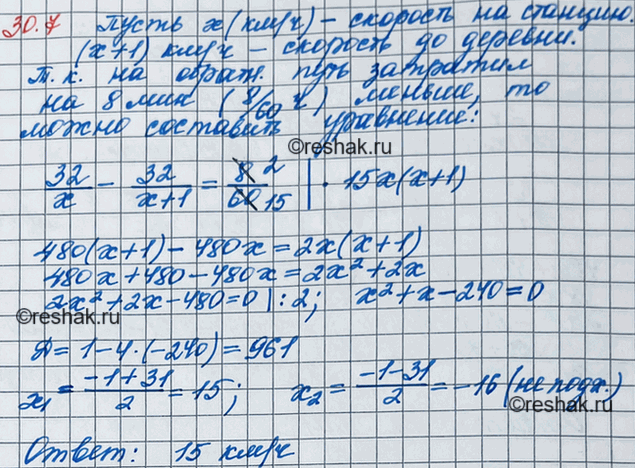 30.7 Пусть x (км/ч) – скорость на станцию.
(x+1) км/ч – скорость до деревни.
Т.к. на обратн. путь затратил
на 8 мин (8/60 ч) меньше, то
можно составить уравнение:
©reshak.ru
32/x - 32/(x+1) = 8/60 2 15 | · 15x(x+1)
480(x+1) - 480x = 2x(x+1)
480x + 480 - 480x = 2x² + 2x
2x² + 2x - 480 = 0 |:2; x² + x - 240 = 0
©reshak.ru
Д = 1 - 4·(-240) = 961
x₁ = (-1+31)/2 = 15; x₂ = (-1-31)/2 = -16 (не подх.)
©reshak.ru
Ответ: 15 км/ч